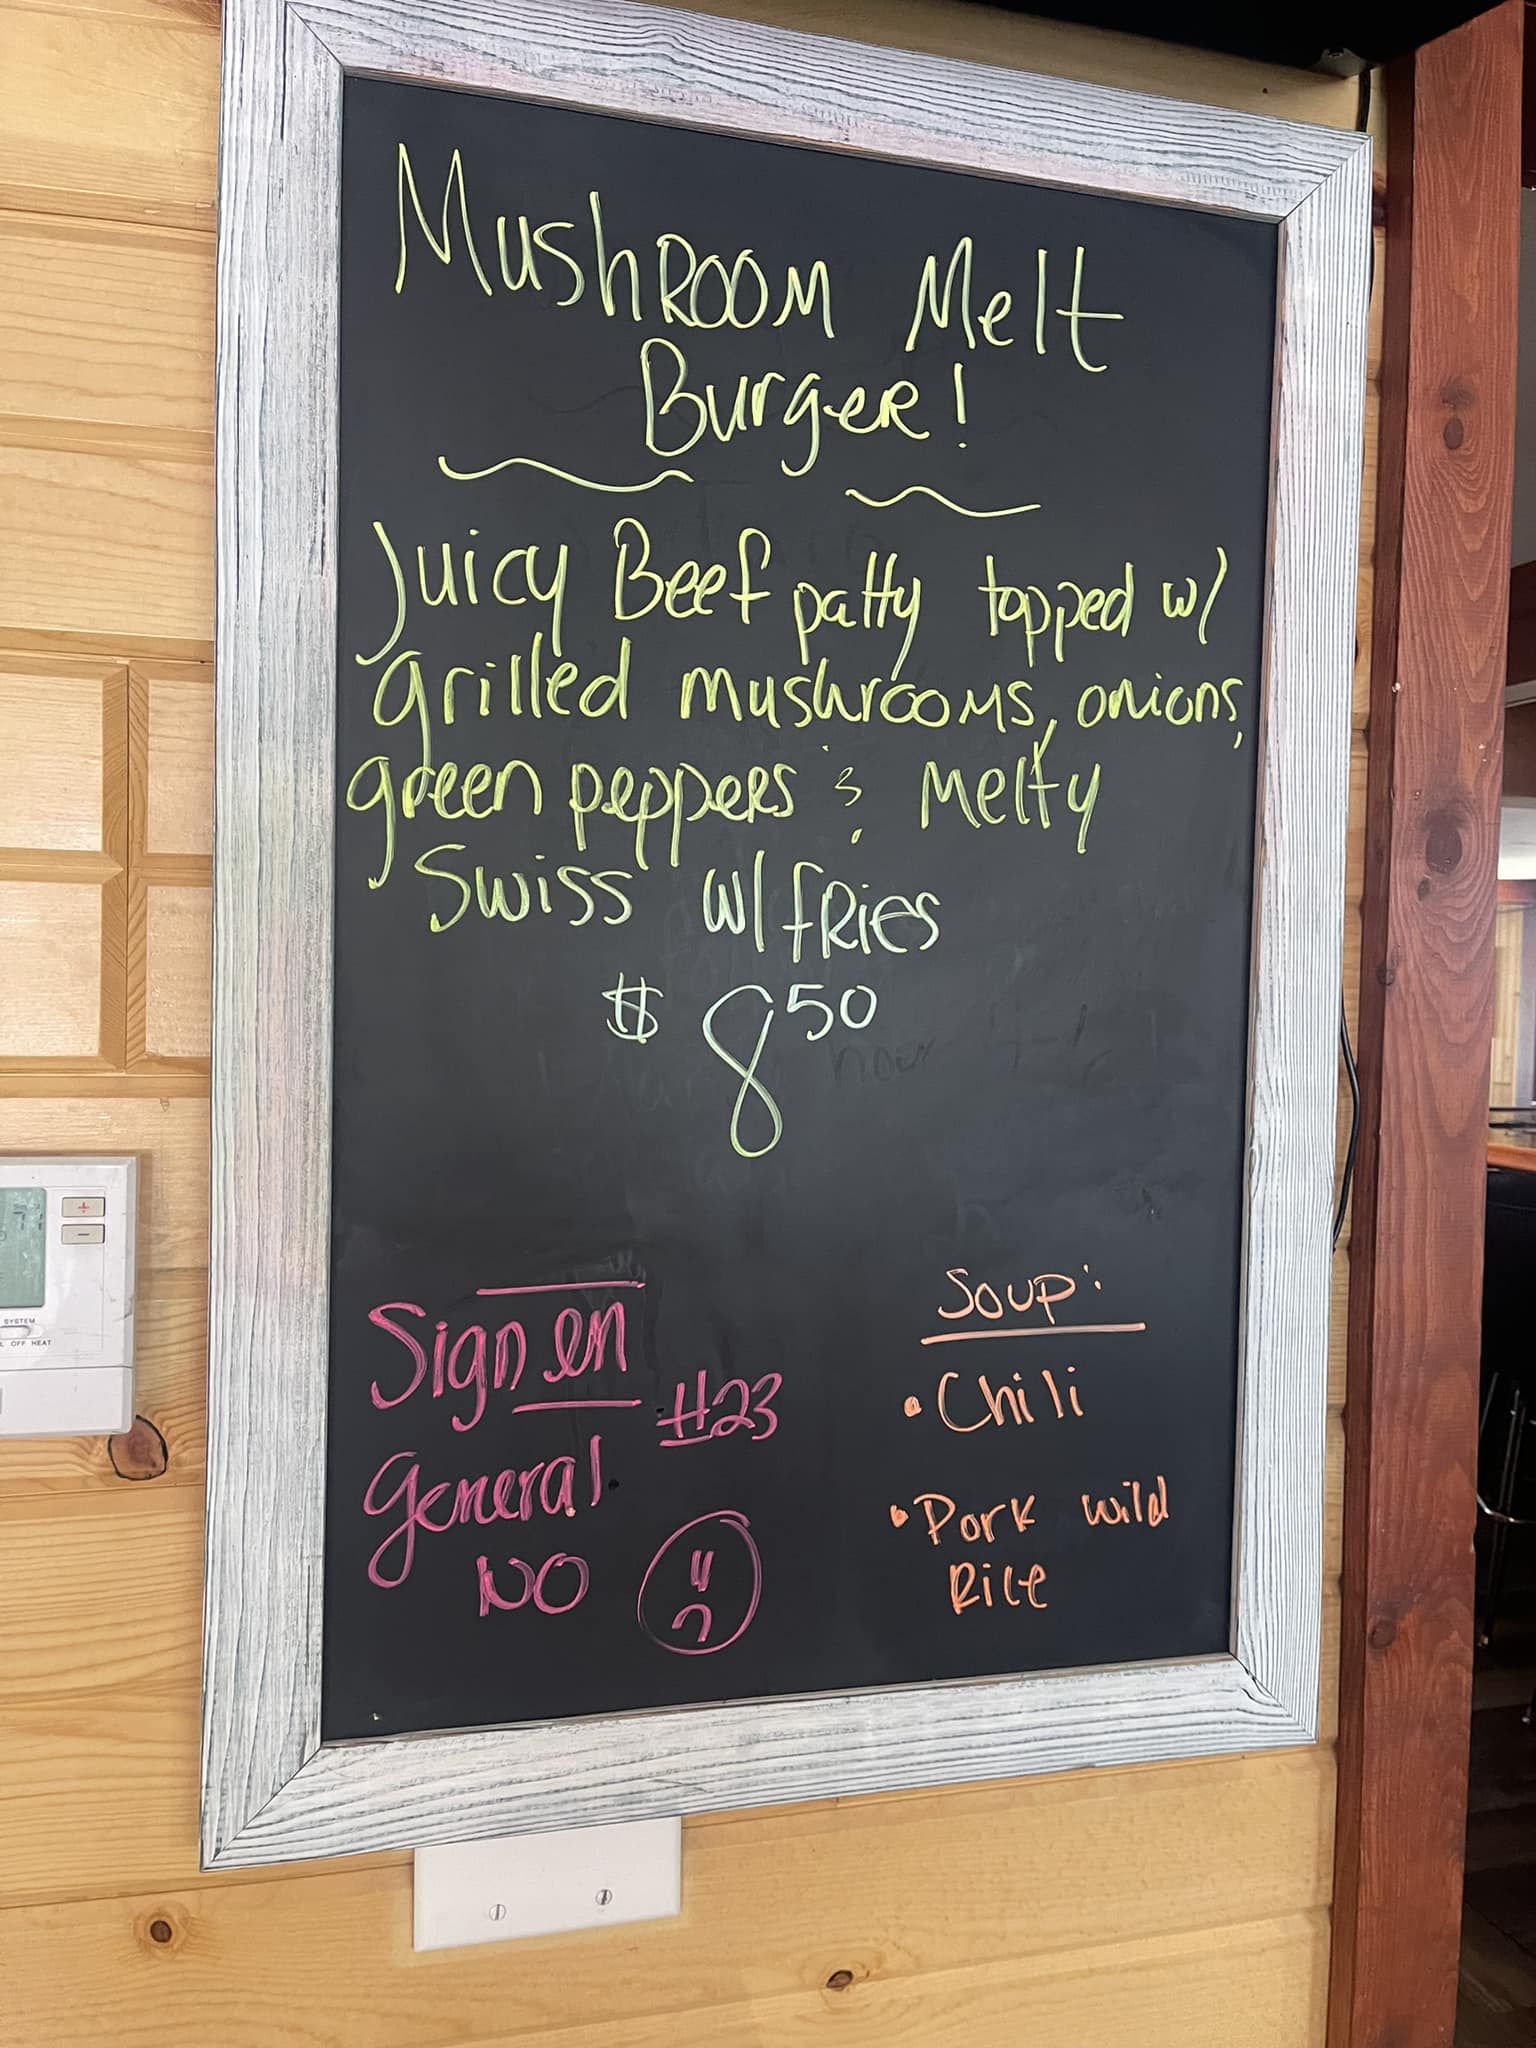 Mushroom Melt
Burger!
Juicy Beef patty topped w/
grilled mushrooms, onions,
green peppers & Melty
Swiss w/ fries
$ 8 50
Sign en
#23
General
NO
Soup:
• Chili
• Pork Wild
Rice
SYSTEM
OFF HEAT